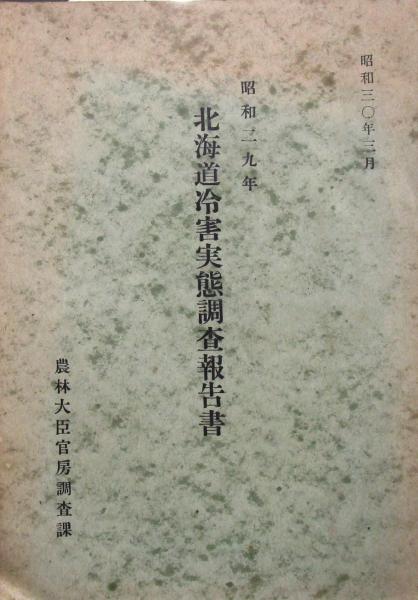 昭和三〇年三月
昭和二九年
北海道冷害実態調査報告書
農林大臣官房調査課